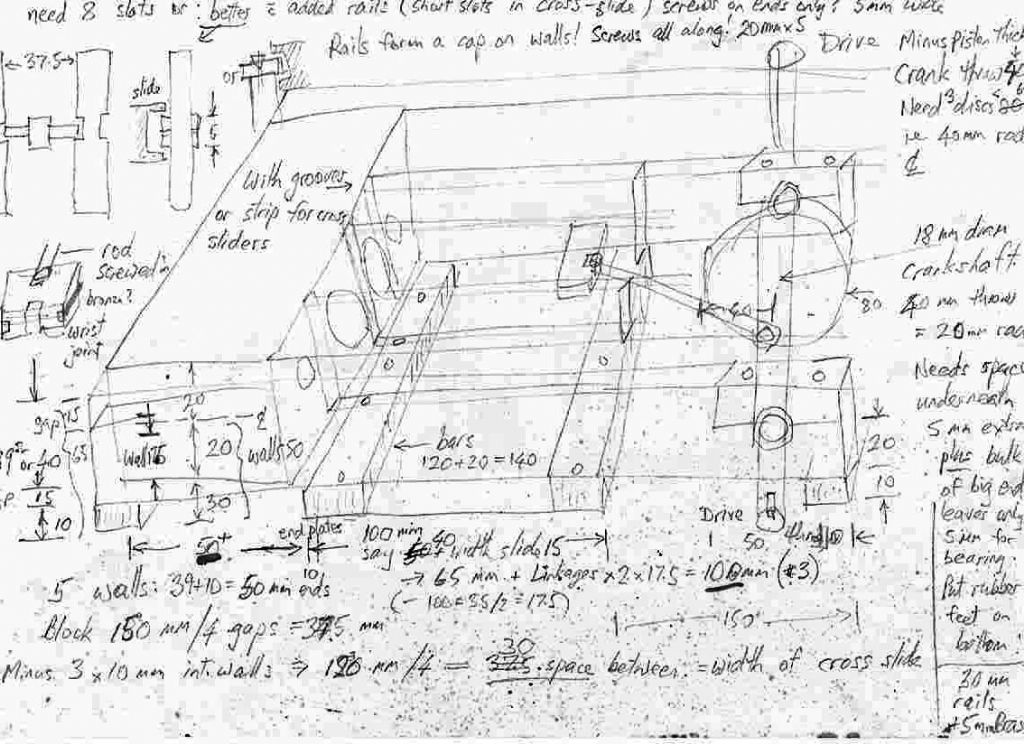 need 8 slots or : better = added rails (short slots in cross-slide) screws on ends only? 5mm wide
Rails form a cap on walls! Screws all along! 20mm x 5
Drive
Minus piston thick
Crank throw
Need 3 discs
i.e. 40mm rad
37.5
slide
5
or
With grooves
or strip for cross
sliders
rod
screwed in
bronze?
wrist
joint
18 mm diam
crankshaft
40 mm throws
= 20mm rad
40
80
Needs space
underneath
5 mm extra
plus bulk
of big end
leaves only
5mm for
bearing.
Put rubber
feet on
bottom!
gap 15
65
or 40
15
10
20
wall 15
20
walls 50
30
bars
120+20=140
20
10
50+
end plates
10
100 min
say 40 + width slide 15
Drive
1 50
→ 65 mm + Linkages x2 x 17.5 = 100mm (*3)
(-100=35/2=17.5)
150
5 walls: 39+10=50 mm ends
Block 150 mm/4 gaps = 37.5 mm
Minus 3 x 10 mm int. walls ⇒ 120 mm/4 = 30 space between = width of cross slide
20 mm
rails
+5mm